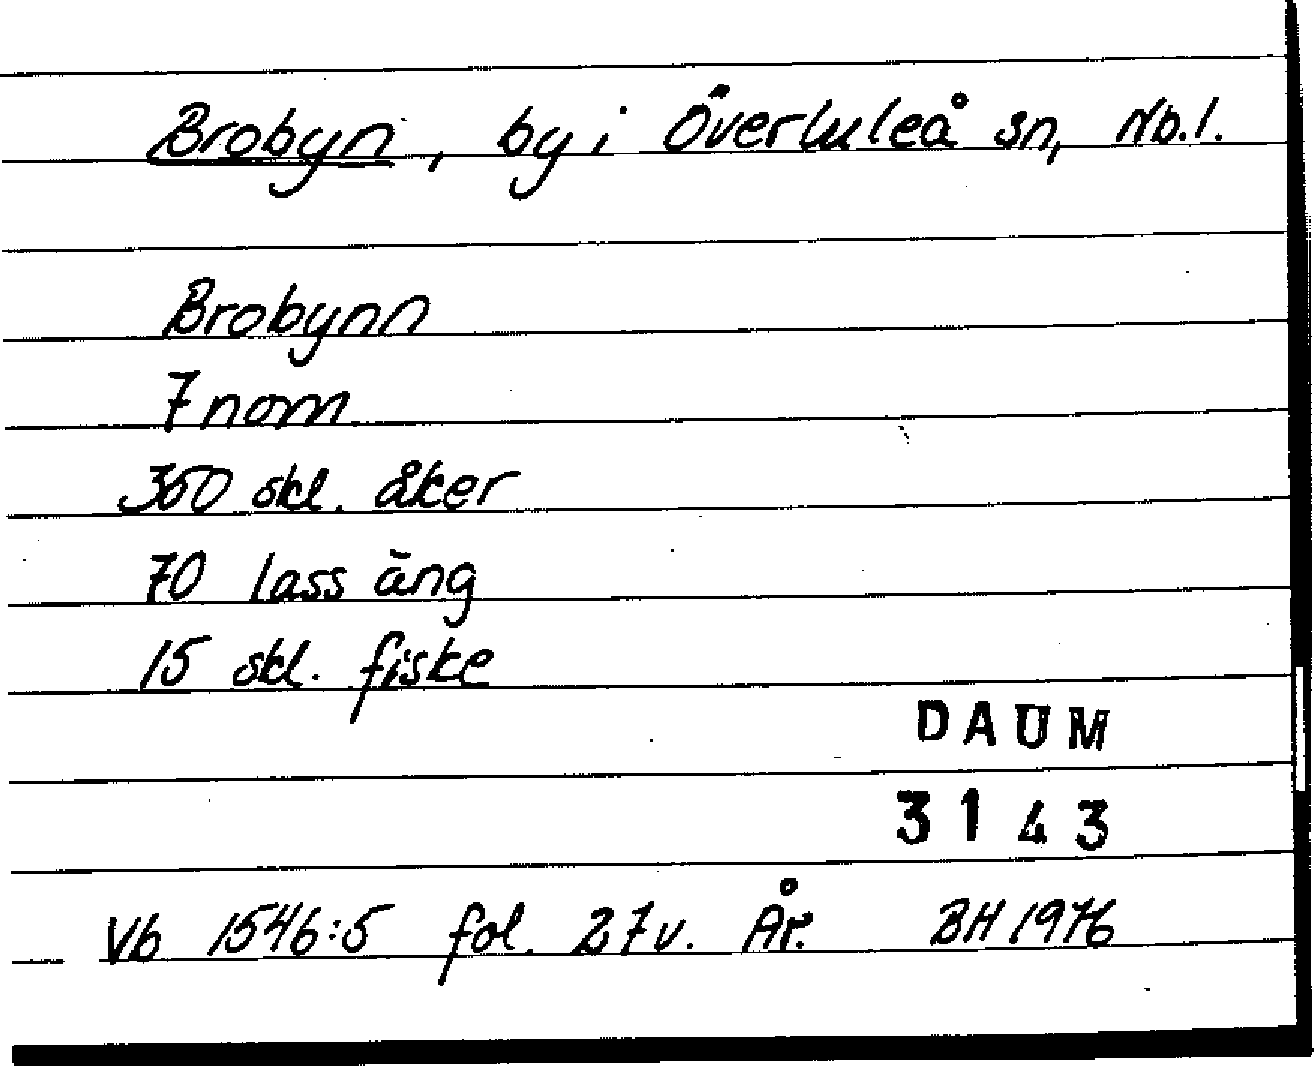 Brobyn, by i Överluleå sn, Nb.l.
Brobynn
7 nom
360 skl. åker
70 lass äng
15 skl. fiske
DAUM
3143
Vb 1546:5 fol. 27v. År. BH 1976